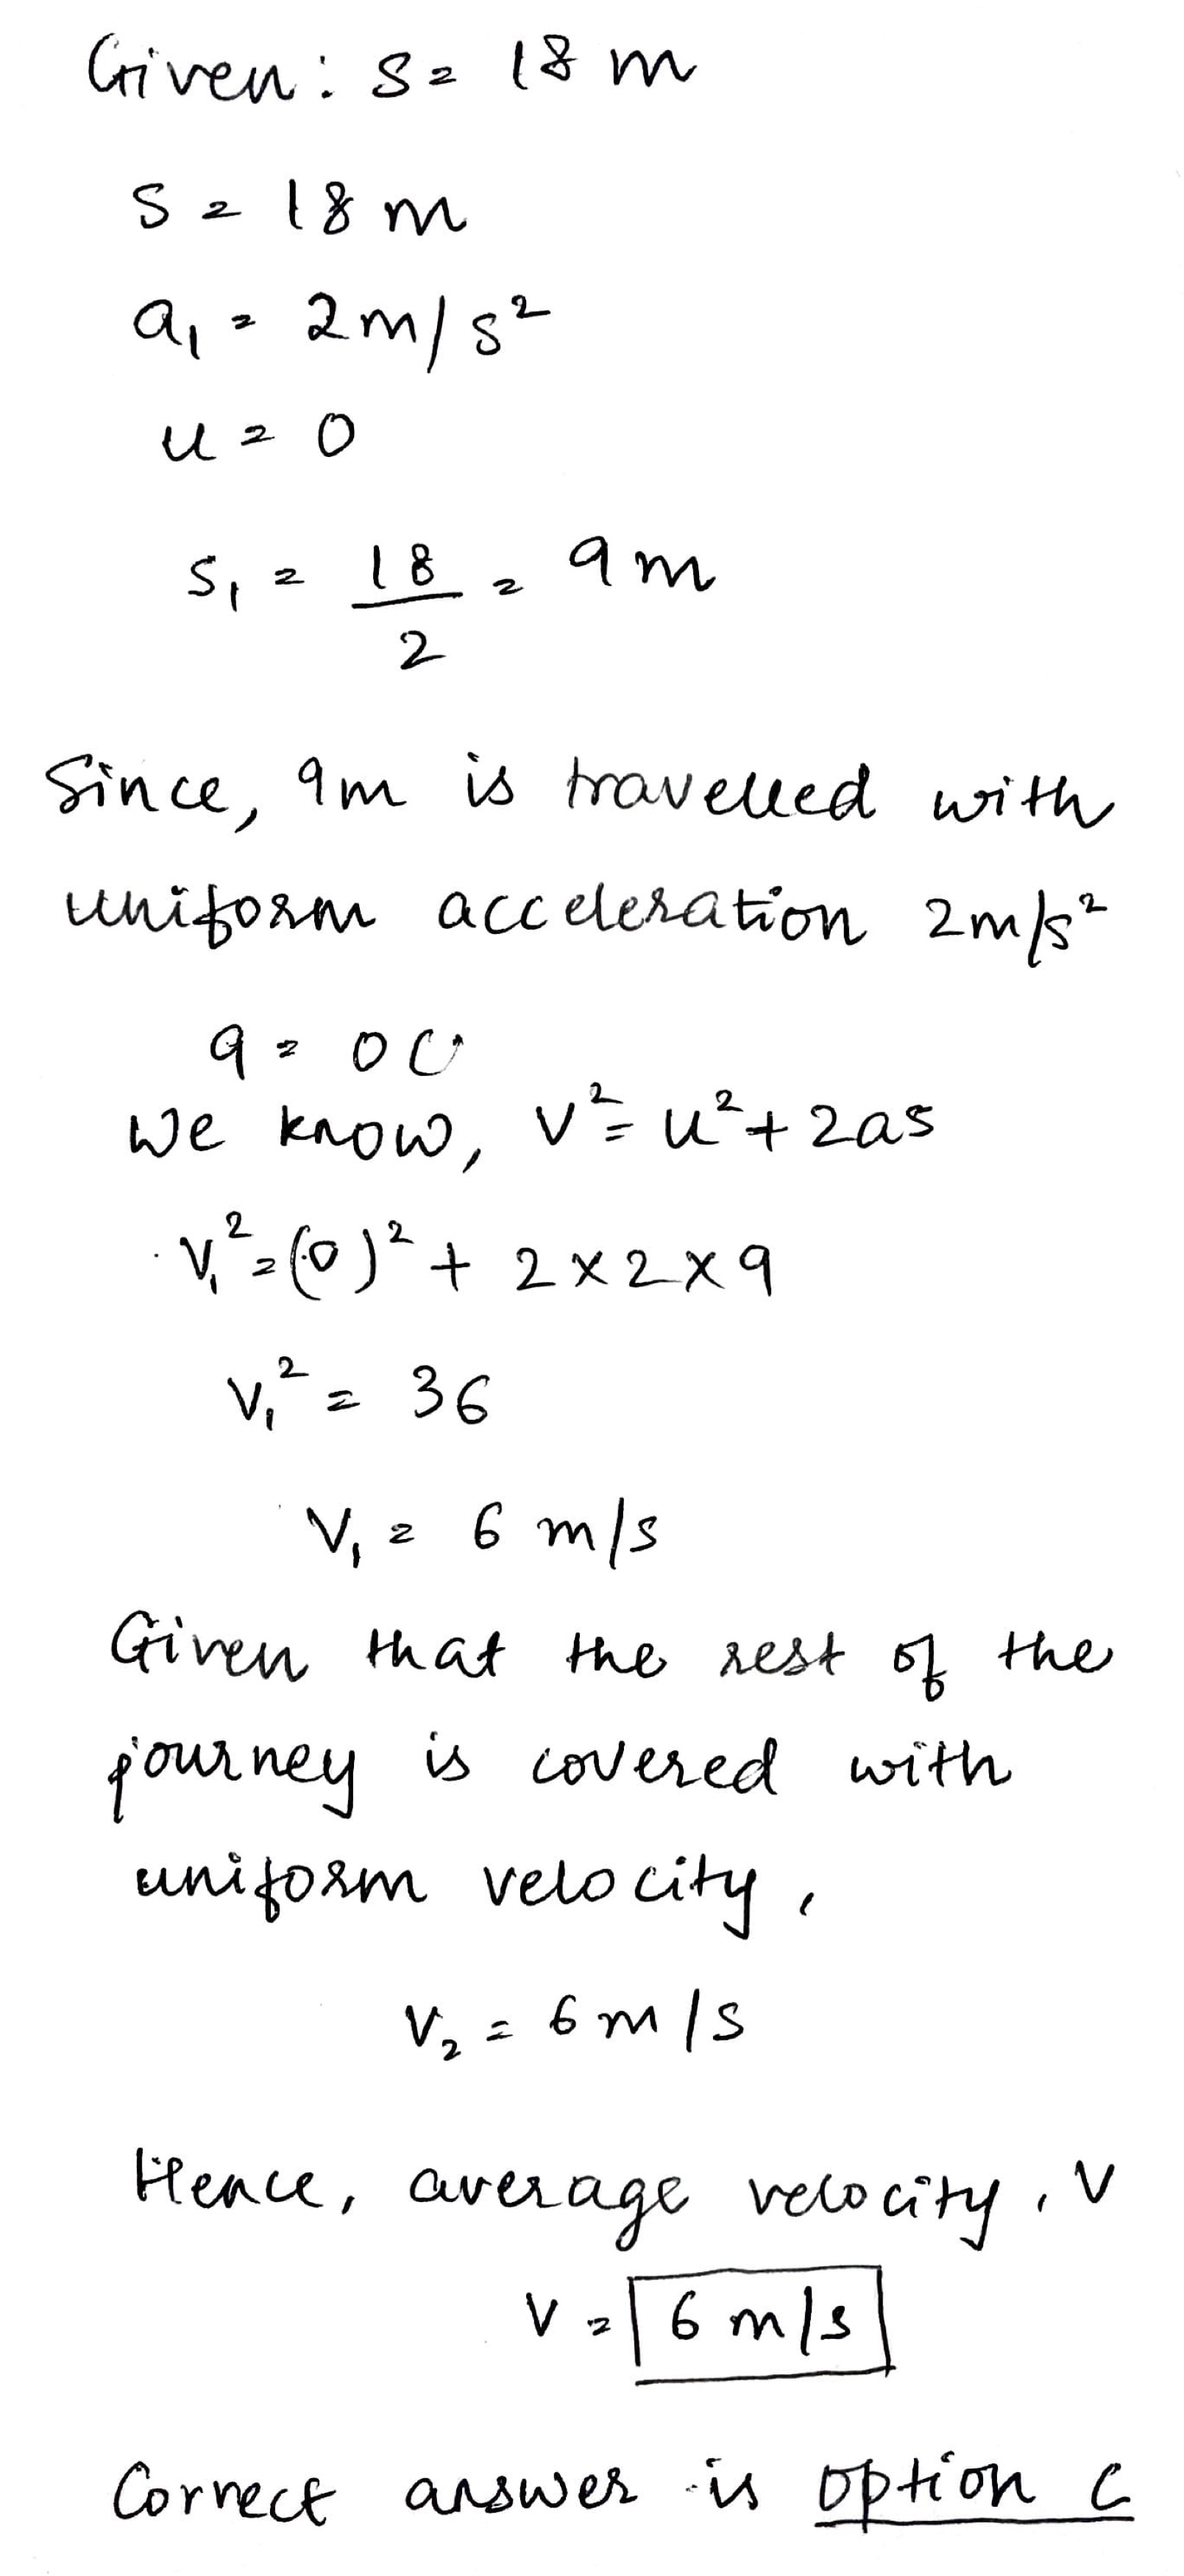 Given: S = 18 m
S = 18 m
a₁ = 2m/s²
u = 0
S₁ = 18/2 = 9m
Since, 9m is travelled with
uniform acceleration 2m/s²
9 = 0
We know, v² = u² + 2as
v₁² = (0)² + 2×2×9
v₁² = 36
v₁ = 6 m/s
Given that the rest of the
journey is covered with
uniform velocity,
v₂ = 6m/s
Hence, average velocity, v
v = 6 m/s
Correct answer is option C